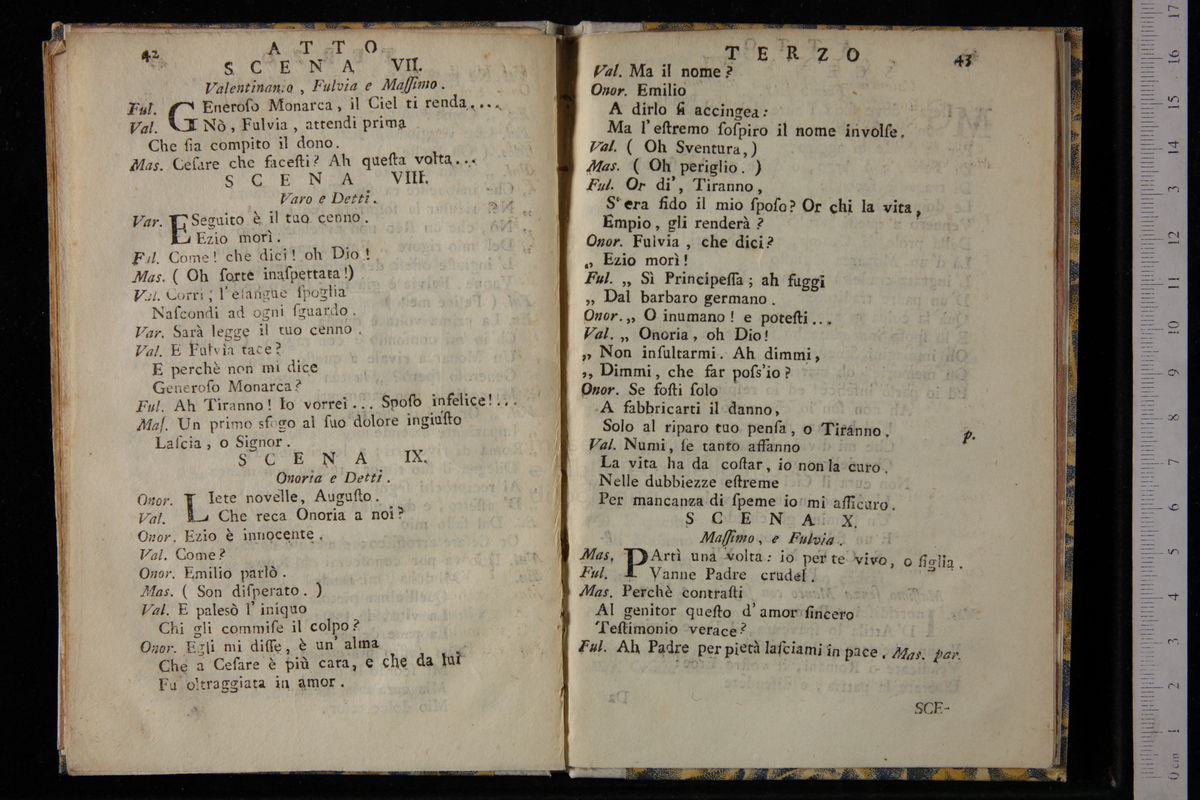 42
ATTO
SCENA VII.
Valentinan.o , Fulvia e Maſſimo .
Ful. GEneroſo Monarca , il Ciel ti renda ....
Val. Nò , Fulvia , attendi prima
Che ſia compito il dono.
Mas. Ceſare che faceſti? Ah queſta volta...
SCENA VIII.
Varo e Detti .
Var. ESeguito è il tuo cenno .
Ezio morì .
Ful. Come! che dici! oh Dio !
Mas. ( Oh ſorte inaſpettata!)
Val. Corri ; l'eſangue ſpoglia
Naſcondi ad ogni ſguardo .
Var. Sarà legge il tuo cenno .
Val. E Fulvia tace?
E perchè non mi dice
Generoſo Monarca?
Ful. Ah Tiranno! Io vorrei... Spoſo infelice!...
Maſ. Un primo sfogo al ſuo dolore ingiuſto
Laſcia , o Signor .
SCENA IX.
Onoria e Detti .
Onor. LIete novelle, Auguſto .
Val. Che reca Onoria a noi?
Onor. Ezio è innocente .
Val. Come?
Onor. Emilio parlò .
Mas. ( Son diſperato . )
Val. E palesò l' iniquo
Chi gli commiſe il colpo?
Onor. Egli mi diſſe, è un' alma
Che a Ceſare è più cara, e che da lui
Fu oltraggiata in amor .
TERZO
43
Val. Ma il nome?
Onor. Emilio
A dirlo ſi accingea:
Ma l'eſtremo ſoſpiro il nome involſe.
Val. ( Oh Sventura,)
Mas. ( Oh periglio. )
Ful. Or di', Tiranno,
S'era fido il mio ſpoſo? Or chi la vita,
Empio, gli renderà?
Onor. Fulvia , che dici?
„ Ezio morì!
Ful. „ Sì Principeſſa; ah fuggi
„ Dal barbaro germano .
Onor. „ O inumano! e poteſti...
Val. „ Onoria, oh Dio!
„ Non inſultarmi. Ah dimmi,
„ Dimmi, che far poſs'io?
Onor. Se foſti ſolo
A fabbricarti il danno,
Solo al riparo tuo penſa, o Tiranno. p.
Val. Numi, ſe tanto affanno
La vita ha da coſtar, io non la curo.
Nelle dubbiezze eſtreme
Per mancanza di ſpeme io mi aſſicuro.
SCENA X.
Maſſimo, e Fulvia .
Mas. PArtì una volta: io per te vivo, o figlia .
Ful. Vanne Padre crudel .
Mas. Perchè contraſti
Al genitor queſto d' amor ſincero
Teſtimonio verace?
Ful. Ah Padre per pietà laſciami in pace. Mas. par.
SCE-